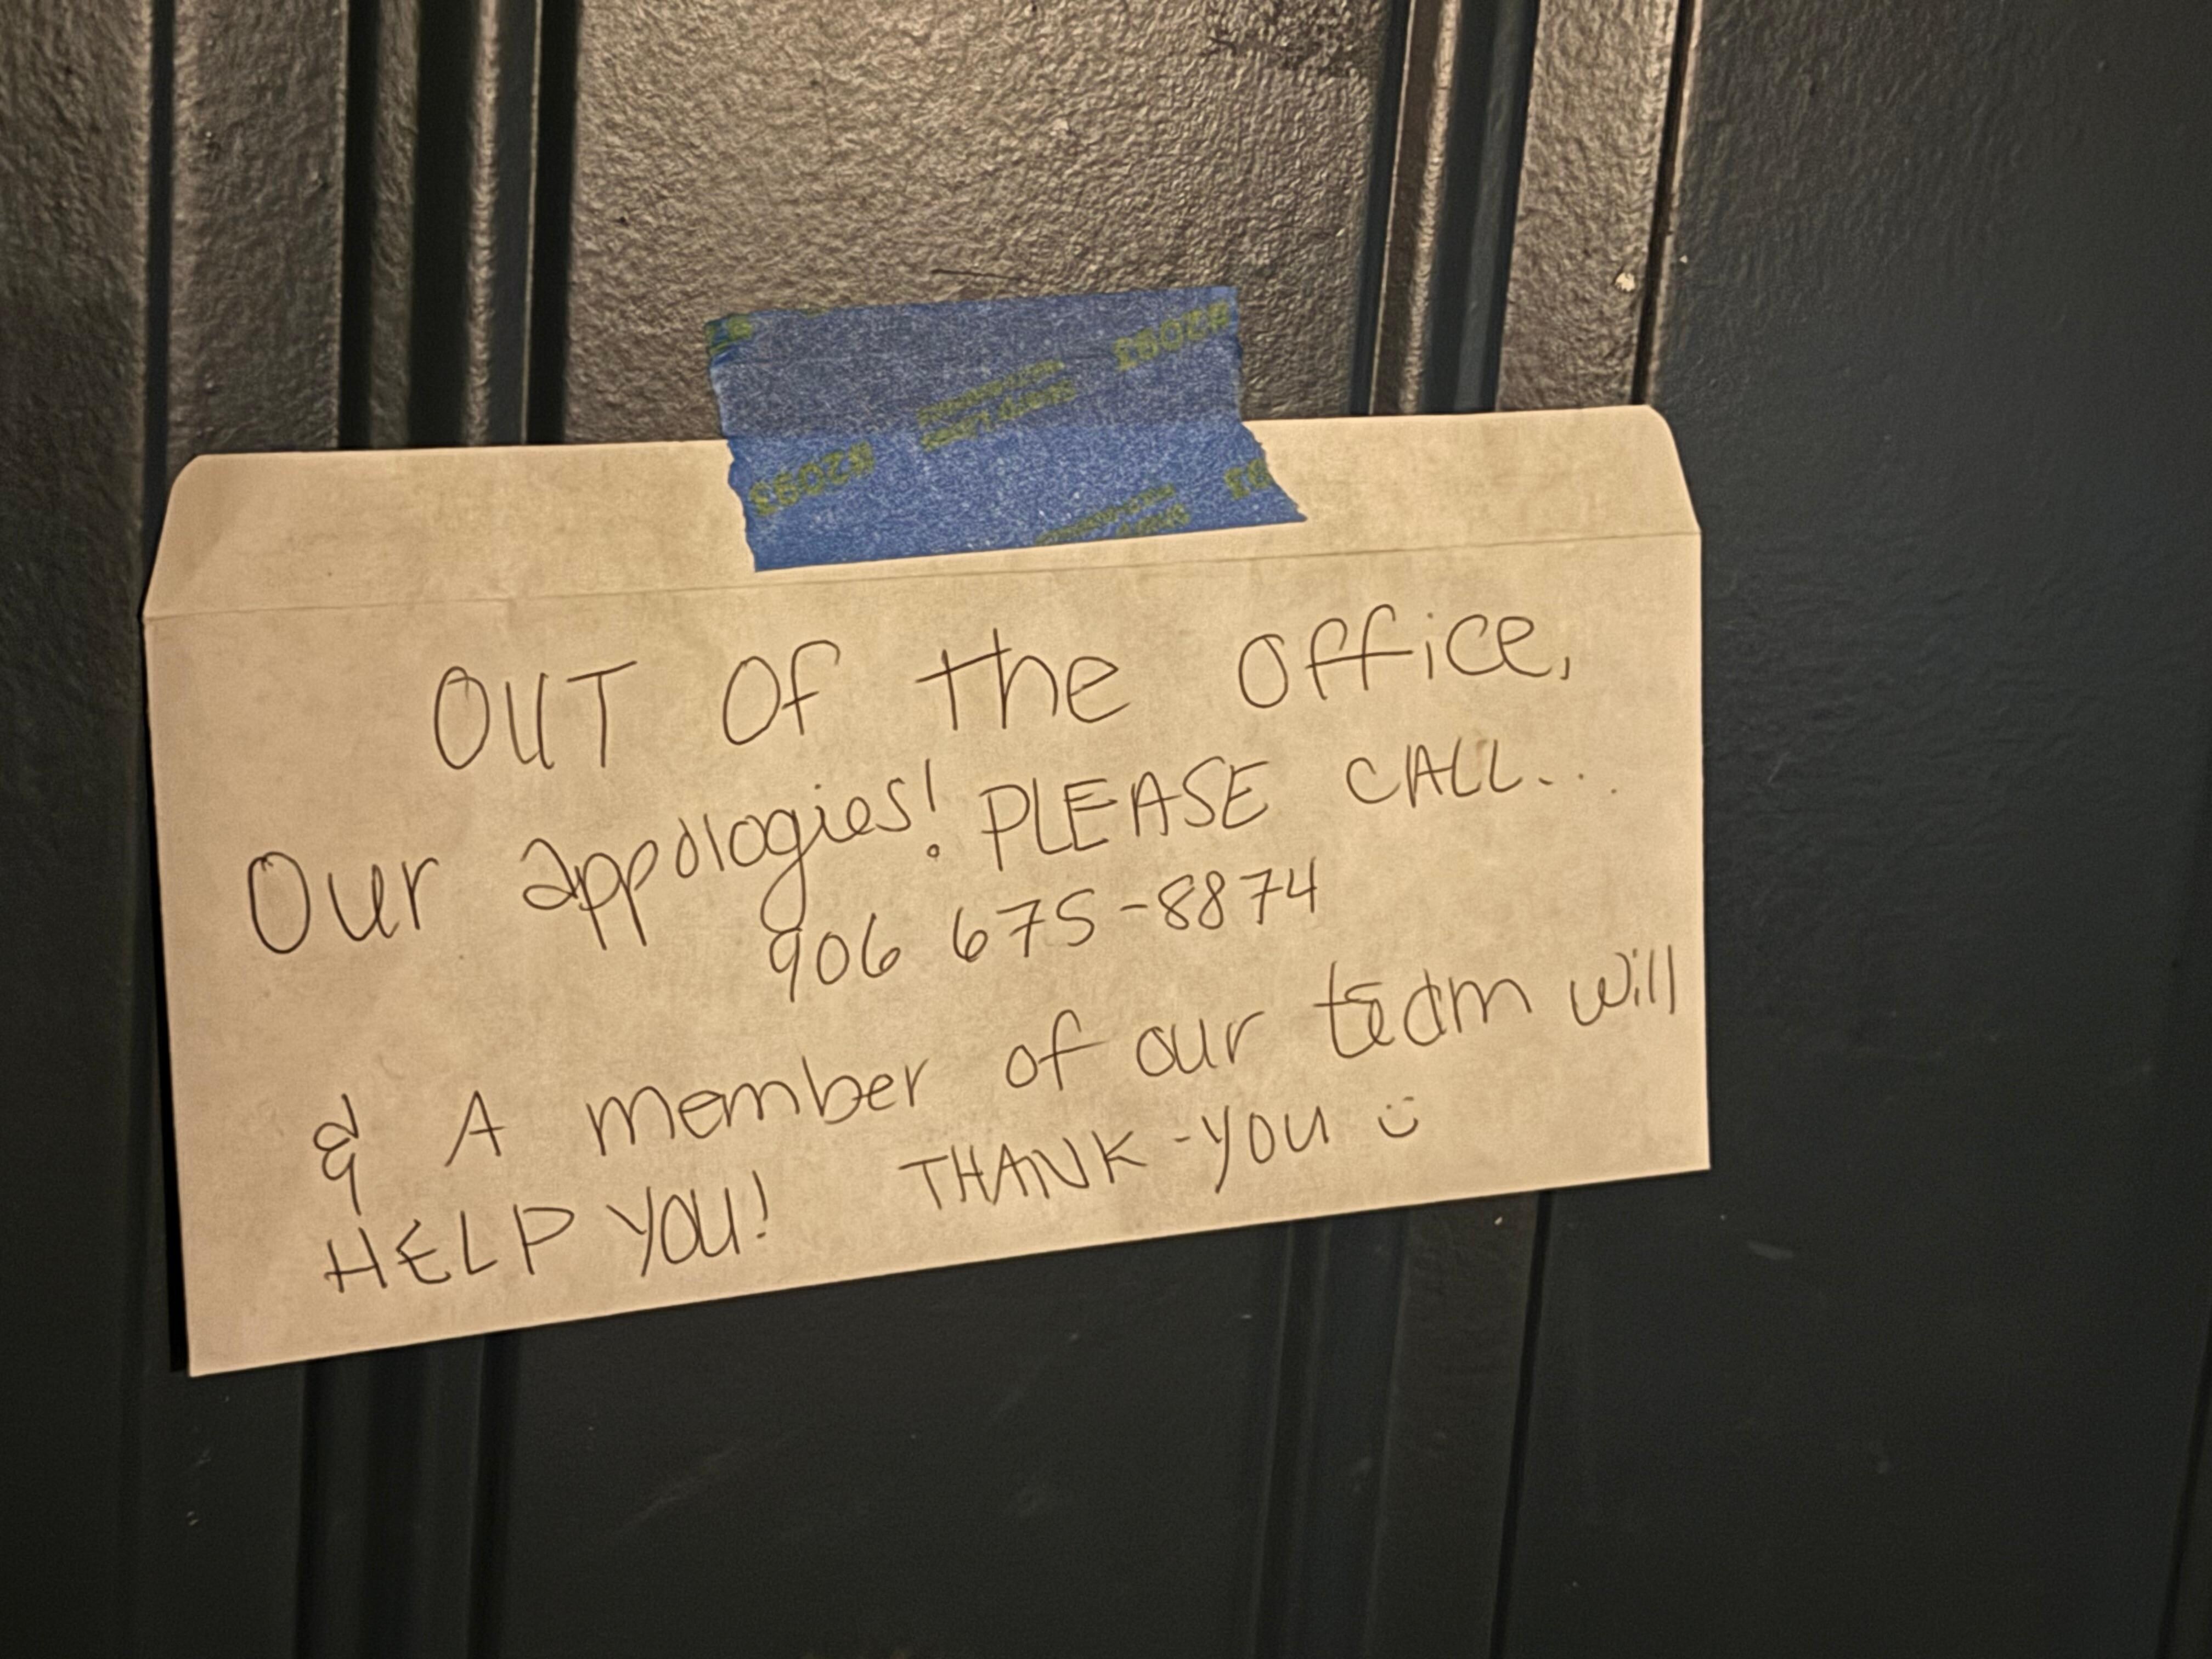 #2093
#2093
OUT Of the office,
Our appologies! PLEASE CALL...
906 675-8874
& A member of our team will
HELP YOU! THANK-YOU :)